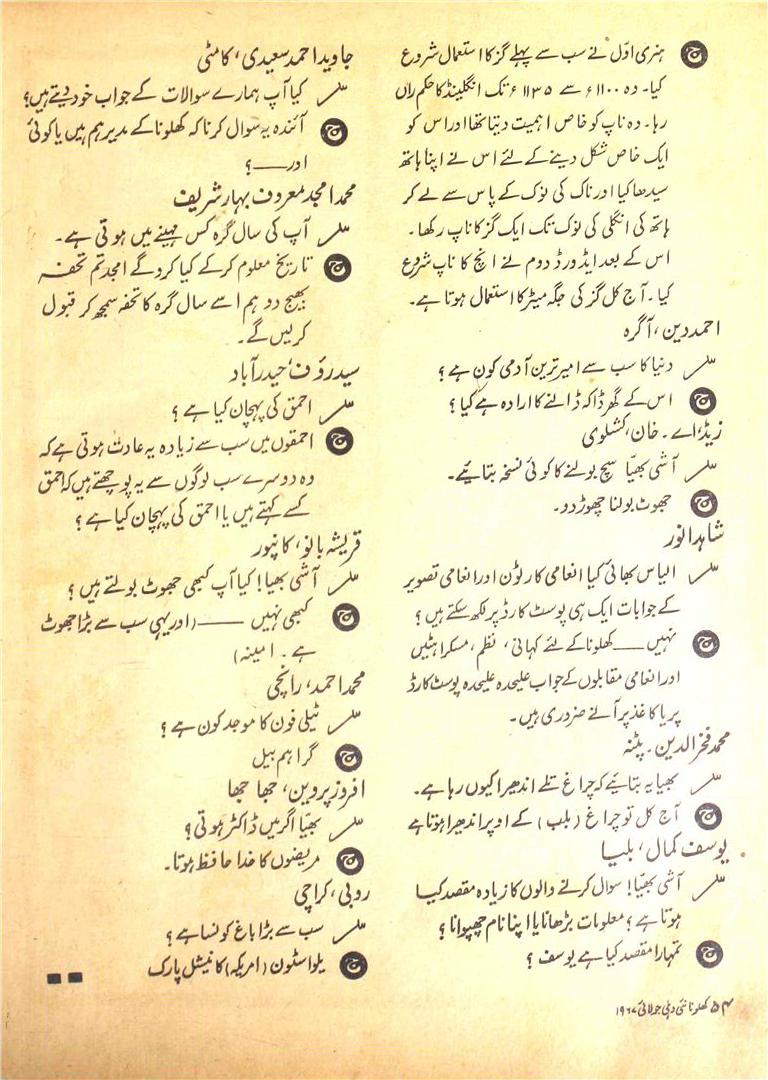 ج ہنری اوّل نے سب سے پہلے گز کا استعمال شروع
کیا۔ وہ ۱۱۰۰ء سے ۱۱۳۵ء تک انگلینڈ کا حکمراں
رہا۔ وہ ناپ کو خاص اہمیت دیتا تھا اور اس کو
ایک خاص شکل دینے کے لئے اس نے اپنا ہاتھ
سیدھا کیا اور ناک کی نوک کے پاس سے لے کر
ہاتھ کی انگلی کی نوک تک ایک گز کا ناپ رکھا۔
اس کے بعد ایڈورڈ دوم نے انچ کا ناپ شروع
کیا۔ آج کل گز کی جگہ میٹر کا استعمال ہوتا ہے۔
احمد دین، آگرہ
س دنیا کا سب سے امیر ترین آدمی کون ہے؟
ج اس کے گھر ڈاکہ ڈالنے کا ارادہ ہے کیا؟
زیڈ۔ اے۔ خان، کشلوی
س آشی بھیّا سچ بولنے کا کوئی نسخہ بتائیے۔
ج جھوٹ بولنا چھوڑ دو۔
شاہد انور
س الیاس بھائی کیا انعامی کارٹون اور انعامی تصویر
کے جوابات ایک ہی پوسٹ کارڈ پر لکھ سکتے ہیں؟
ج نہیں —— کھلونا کے لئے کہانی، نظم، مسکراہٹیں
اور انعامی مقابلوں کے جواب علیحدہ علیحدہ پوسٹ کارڈ
پر یا کاغذ پر آنے ضروری ہیں۔
محمد فخر الدین۔ پٹنہ
س بھیا یہ بتائیے کہ چراغ تلے اندھیرا کیوں رہا ہے۔
ج آج کل تو چراغ (بلب) کے اوپر اندھیرا ہوتا ہے
یوسف کمال، بلیا
س آشی بھیّا! سوال کرنے والوں کا زیادہ مقصد کیا
ہوتا ہے؟ معلومات بڑھانا یا اپنا نام چھپوانا؟
ج تمہارا مقصد کیا ہے یوسف؟
جاوید احمد سعیدی، کامٹی
س کیا آپ ہمارے سوالات کے جواب خود دیتے ہیں؟
ج آئندہ یہ سوال کرنا کہ کھلونا کے مدیر ہم ہیں یا کوئی
اور —— ؟
محمد امجد معروف بہار شریف
س آپ کی سال گرہ کس مہینے میں ہوتی ہے۔
ج تاریخ معلوم کرکے کیا کروگے امجد تم تحفہ
بھیج دو ہم اسے سال گرہ کا تحفہ سمجھ کر قبول
کرلیں گے۔
سید رؤف، حیدرآباد
س احمق کی پہچان کیا ہے؟
ج احمقوں میں سب سے زیادہ یہ عادت ہوتی ہے کہ
وہ دوسرے سب لوگوں سے یہ پوچھتے ہیں کہ احمق
کسے کہتے ہیں یا احمق کی پہچان کیا ہے؟
قریشہ بانو، کانپور
س آشی بھیا! کیا آپ کبھی جھوٹ بولتے ہیں؟
ج کبھی نہیں —— (اور یہی سب سے بڑا جھوٹ
ہے۔ امینہ)
محمد احمد، رانچی
س ٹیلی فون کا موجد کون ہے؟
ج گراہم بیل
افروز پروین، جھا جھا
س بھیّا اگر میں ڈاکٹر ہوتی؟
ج مریضوں کا خدا حافظ ہوتا۔
روبی، کراچی
س سب سے بڑا باغ کونسا ہے؟
ج یلو اسٹون (امریکہ) کا نیشنل پارک
۵۴ کھلونا نئی دہلی جولائی ۱۹۶۷